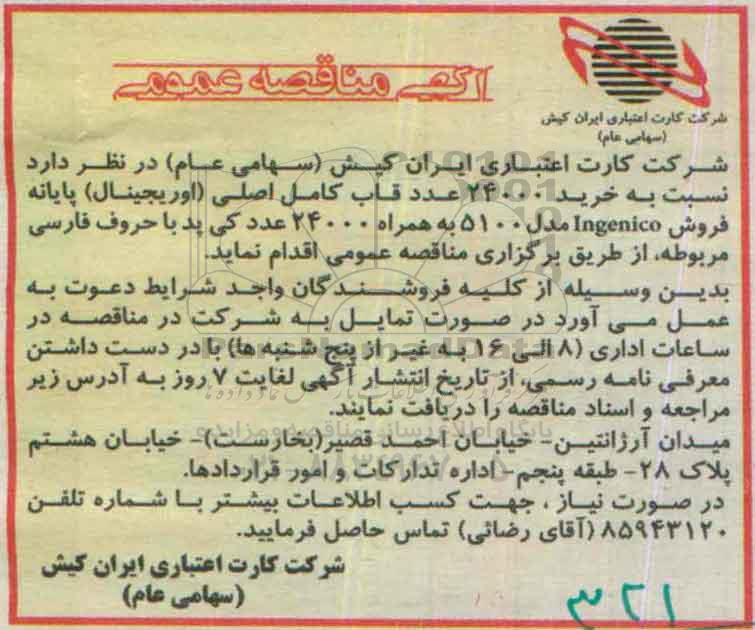 آگهی مناقصه عمومی
شرکت کارت اعتباری ایران کیش
(سهامی عام)
شرکت کارت اعتباری ایران کیش (سهامی عام) در نظر دارد
نسبت به خرید ۲۴۰۰۰ عدد قاب کامل اصلی (اوریجینال) پایانه
فروش Ingenico مدل ۵۱۰۰ به همراه ۲۴۰۰۰ عدد کی پد با حروف فارسی
مربوطه، از طریق برگزاری مناقصه عمومی اقدام نماید.
بدین وسیله از کلیه فروشندگان واجد شرایط دعوت به
عمل می آورد در صورت تمایل به شرکت در مناقصه در
ساعات اداری (۸ الی ۱۶ به غیر از پنج شنبه ها) با در دست داشتن
معرفی نامه رسمی، از تاریخ انتشار آگهی لغایت ۷ روز به آدرس زیر
مراجعه و اسناد مناقصه را دریافت نمایند.
میدان آرژانتین- خیابان احمد قصیر(بخارست)- خیابان هشتم
پلاک ۲۸- طبقه پنجم- اداره تدارکات و امور قراردادها.
در صورت نیاز ، جهت کسب اطلاعات بیشتر با شماره تلفن
۸۵۹۴۳۱۲۰ (آقای رضائی) تماس حاصل فرمایید.
شرکت کارت اعتباری ایران کیش
(سهامی عام)
۳۲۱